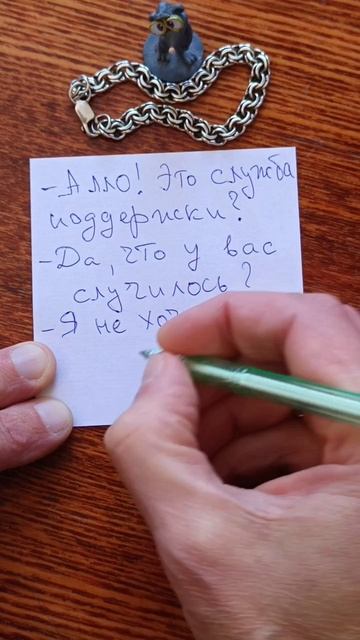 - Алло! Это служба
поддержки?
- Да, что у вас
случилось?
- Я не